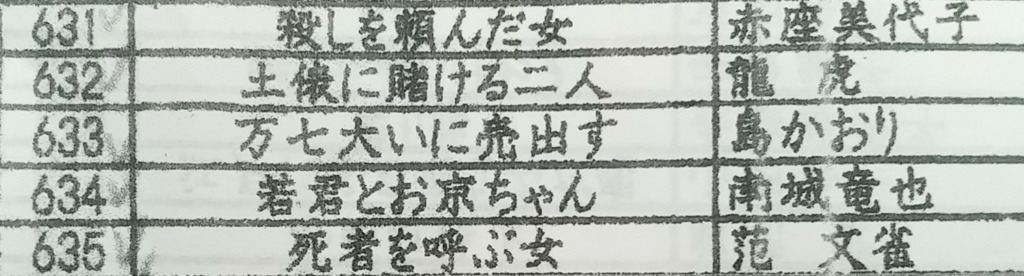 631 殺しを頼んだ女 赤座美代子
632 土俵に賭ける二人 龍 虎
633 万七大いに売出す 島かおり
634 若君とお京ちゃん 南城竜也
635 死者を呼ぶ女 范 文雀